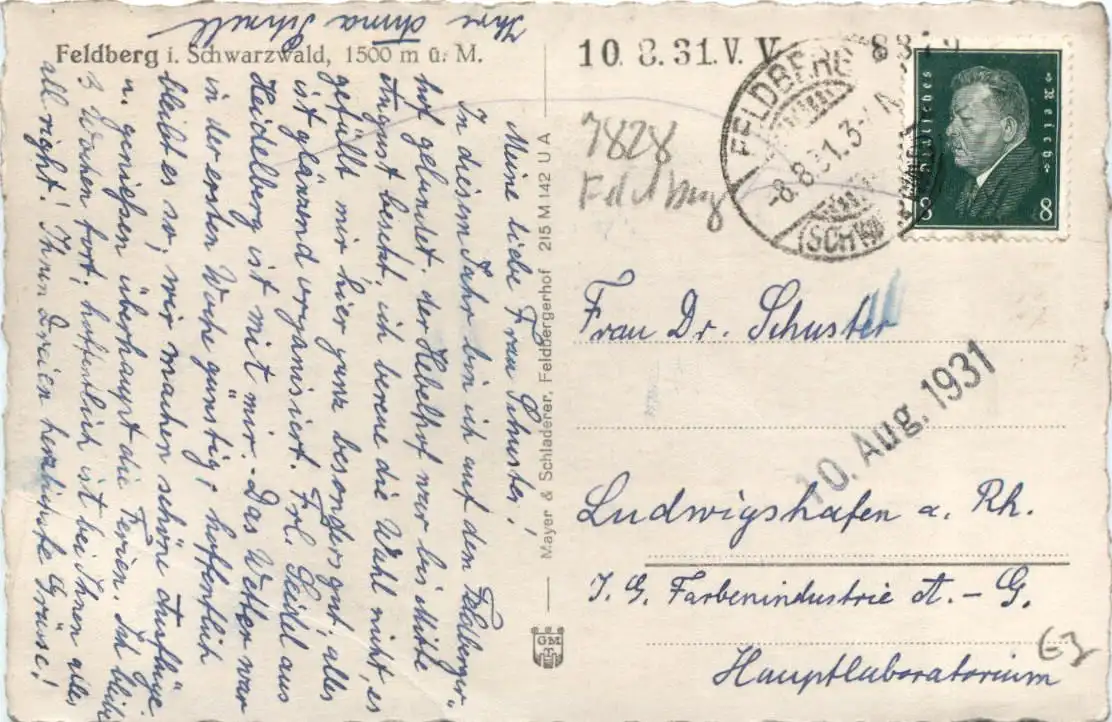 Feldberg i. Schwarzwald, 1500 m ü. M.
Meine liebe Frau Schuster!
In diesem Jahr bin ich auf dem Feldberger-
hof gelandet. der Hebelhof war bis Mitte
August besetzt, ich bereue die Wahl nicht, es
gefällt mir hier ganz besonders gut, alles
ist glänzend organisiert. Frl. Seidel aus
Heidelberg ist mit mir. Das Wetter war
in der ersten Woche günstig; hoffentlich
bleibt es so, wir machen schöne Ausflüge
u. genießen überhaupt die Ferien. Ich bleibe
3 Wochen fort; hoffentlich ist bei Ihnen alles
all right! Ihnen Dreien herzlichste Grüsse!
Ihre Anna Schnell
Mayer & Schladerer, Feldbergerhof 215 M 142 U A
GM
T
10. 8. 31. V. V
FELDBERG
-8.8.31.3-
(SCHW
Deutsches Reich
8 8
7828
Feldberg
Frau Dr. Schuster
10. Aug. 1931
Ludwigshafen a. Rh.
I. G. Farbenindustrie A. - G.
Hauptlaboratorium